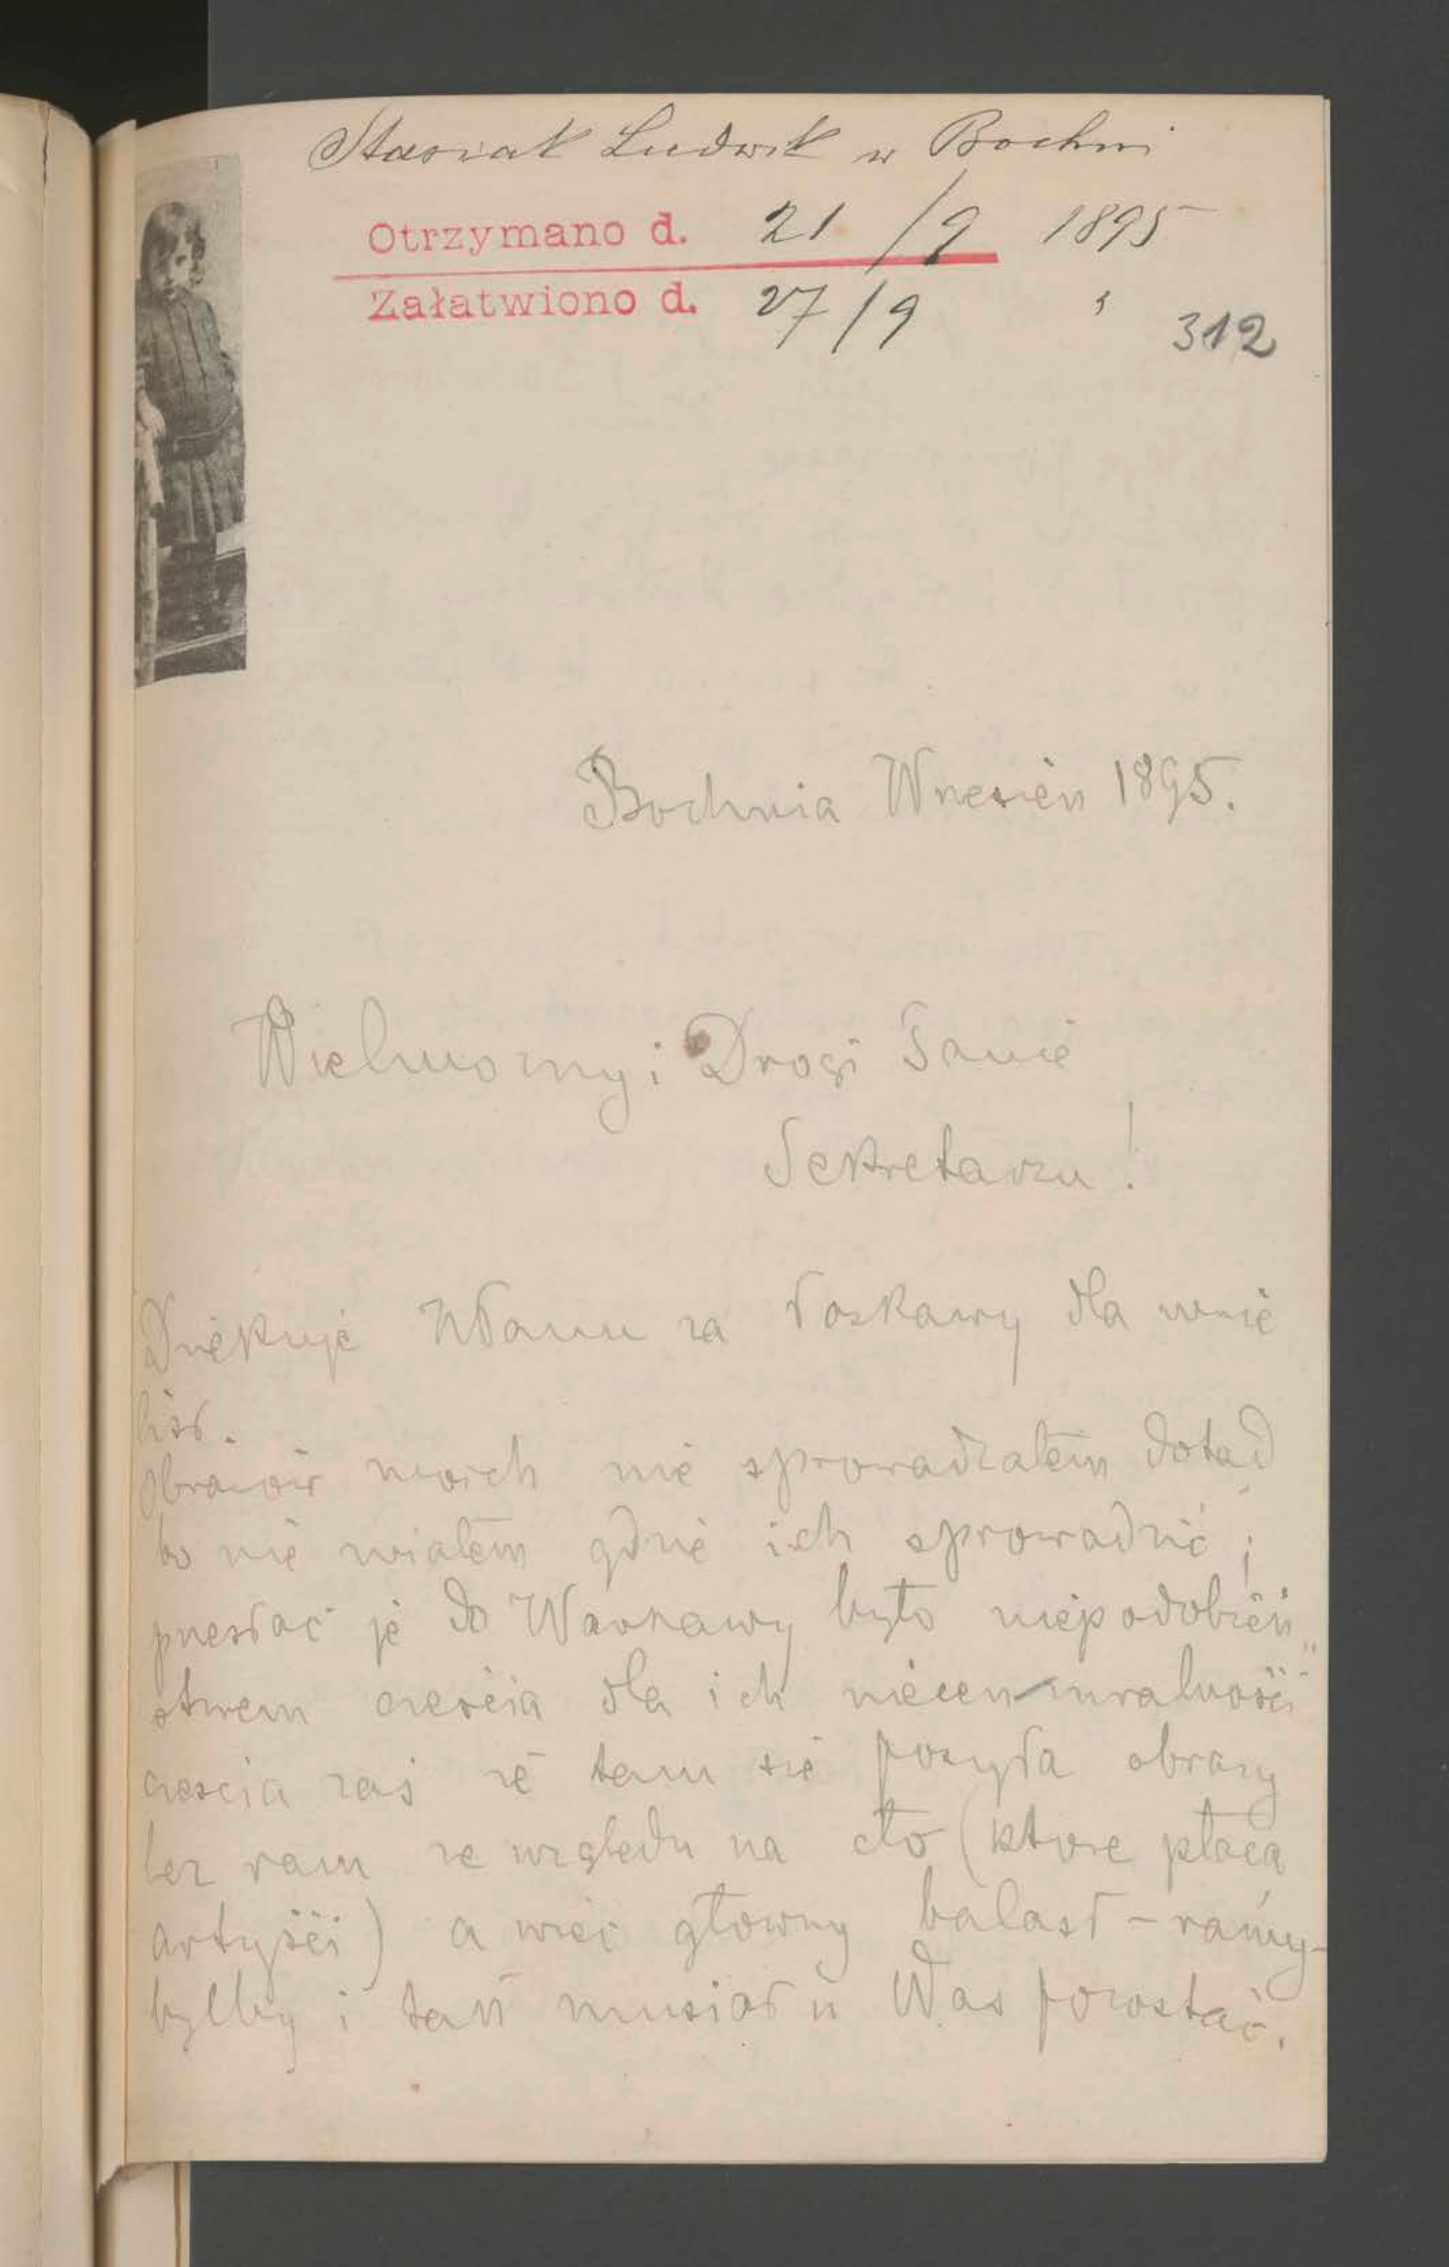 Stasiak Ludwik w Bochni
Otrzymano d. 21/9 1895
Załatwiono d. 27/9 "
312
Bochnia Wrzesień 1895.
Wielmożny i Drogi Panie
Sekretarzu!
Dziękuję WPanu za łaskawy dla mnie
list.
Obrazów moich nie sprowadzałem dotąd
bo nie miałem gdzie ich sprowadzić;
przesłać je do Warszawy było niepodobień„
stwem częścią dla ich niecenzuralności
częścią zaś że tam się posyła obrazy
bez ram ze względu na cło (które płacą
artyści) a więc główny balast – ramy –
byłby i tak musiał u Was pozostać.